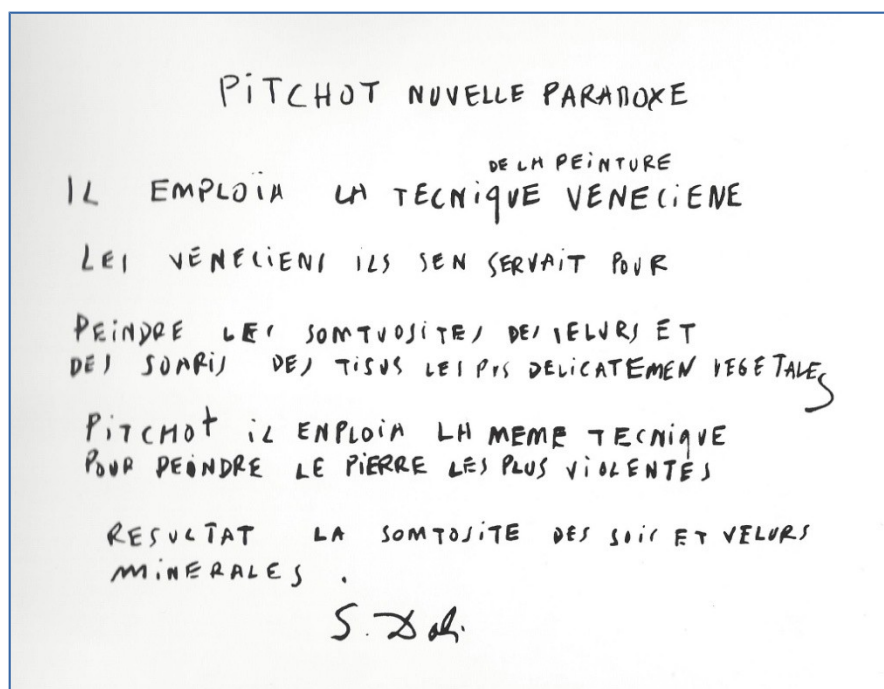 PiTCHOT NUVELLE PARADOXE
DE LA PEiNTURE
IL EMPLOÏA LA TECNiqUE VENECiENE
LES VENECiENS iLS SEN SERVAiT POUR
PEiNDRE LES SOMTUOSiTES DES VELURS ET
DES DES TiSUS LES DELiCATEMEN VEGETALES
PiTCHOt iL ENPLOÏA LA MEME TECNiQUE
POUR PEiNDRE LE PiERRE LES PLUS ViOLENTES
RESULTAT LA SOMTOSiTE DES SOiS ET VELURS
MiNERALES .
S. Dali.